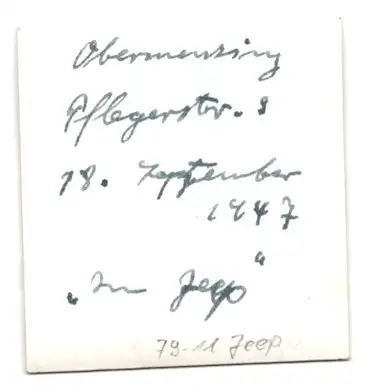 Obermenzing
Pflegerstr. 8
18. September
1947
„Im Jeep“
79-11 Jeep